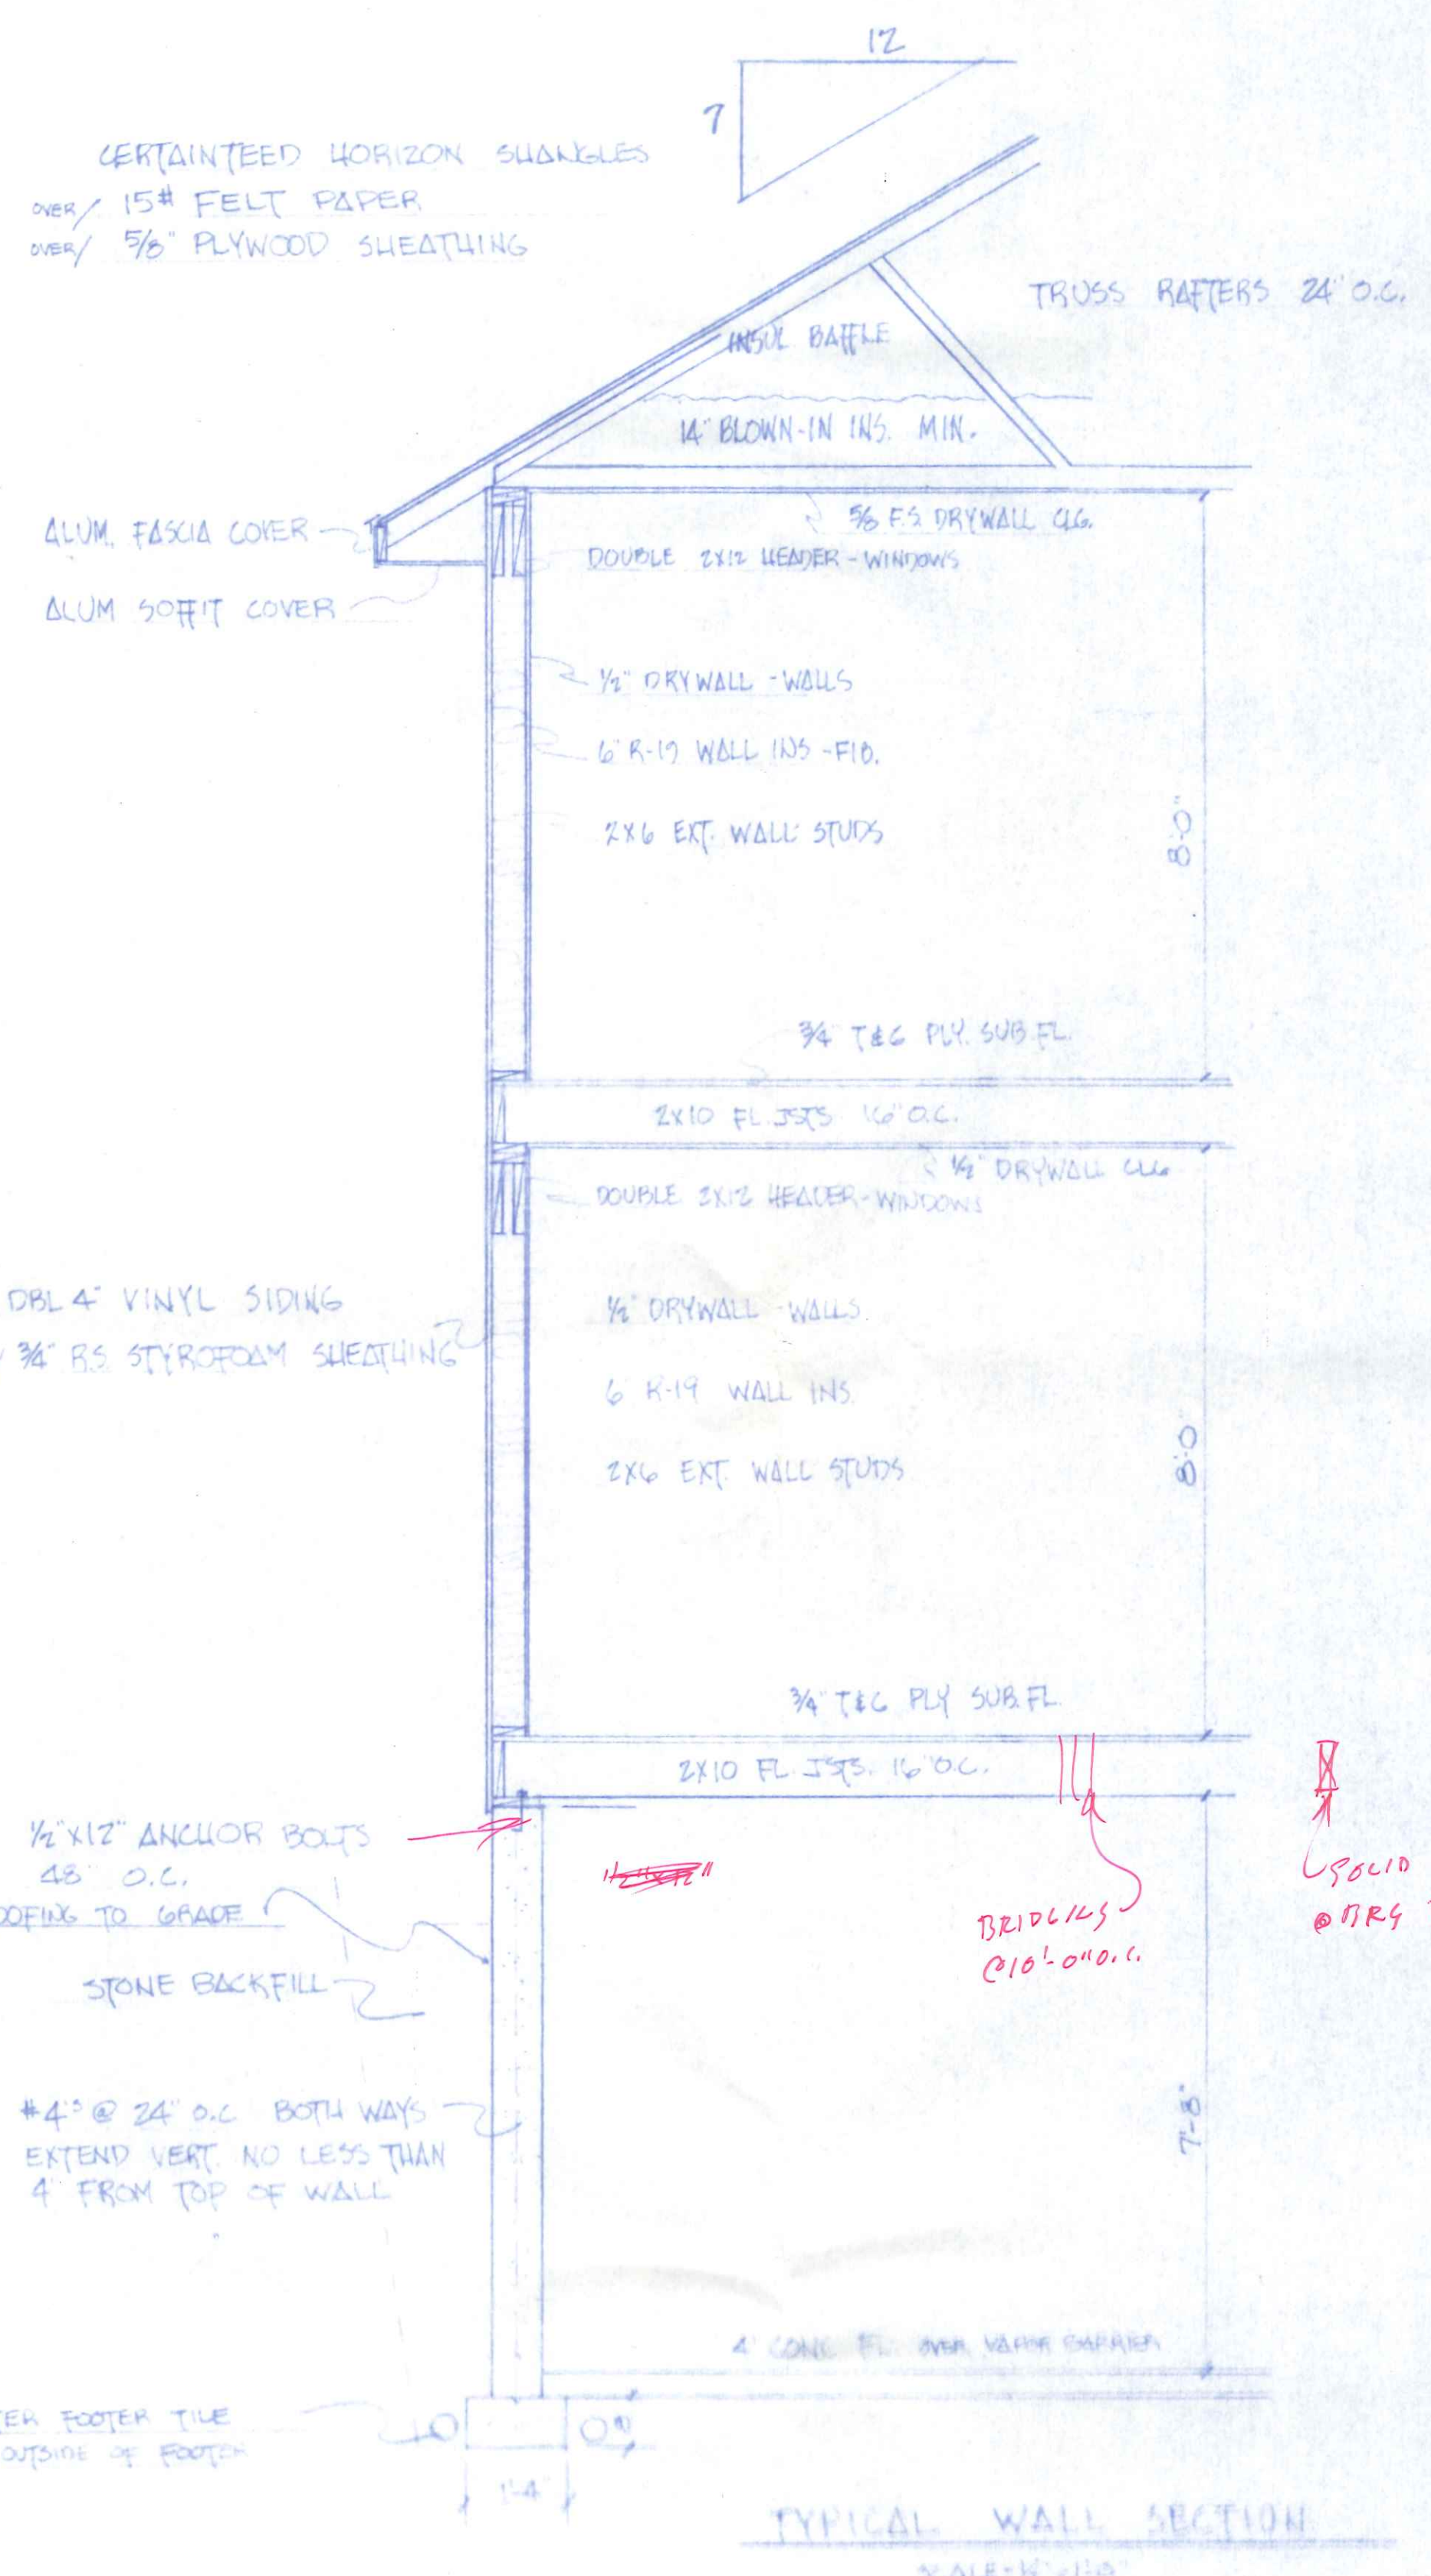 12
7
CERTAINTEED HORIZON SHANGLES
OVER/ 15# FELT PAPER
OVER/ 5/8" PLYWOOD SHEATHING
TRUSS RAFTERS 24" O.C.
INSUL BAFFLE
14" BLOWN-IN INS. MIN.
5/8 F.S. DRYWALL CLG.
ALUM. FASCIA COVER
DOUBLE 2X12 HEADER-WINDOWS
ALUM SOFFIT COVER
1/2" DRYWALL - WALLS
6" R-19 WALL INS - FIB.
2X6 EXT. WALL STUDS
8'-0"
3/4" T&G PLY. SUB.FL.
2X10 FL. JSTS 16" O.C.
1/2" DRYWALL CLG
DOUBLE 2X12 HEADER-WINDOWS
DBL 4" VINYL SIDING
3/4" R.S. STYROFOAM SHEATHING
1/2" DRYWALL - WALLS
6" R-19 WALL INS.
2X6 EXT. WALL STUDS
8'-0
3/4" T&G PLY SUB.FL.
2X10 FL. JSTS. 16" O.C.
1/2"X12" ANCHOR BOLTS
48" O.C.
OOFING TO GRADE
STONE BACKFILL
BRIDGING
@10'-0" O.C.
SOLID
@ BRG
#4's @ 24" O.C. BOTH WAYS
EXTEND VERT. NO LESS THAN
4" FROM TOP OF WALL
7'-8"
4" CONC. FL. OVER VAPOR BARRIER
TER FOOTER TILE
OUTSIDE OF FOOTER
1'-4"
TYPICAL WALL SECTION